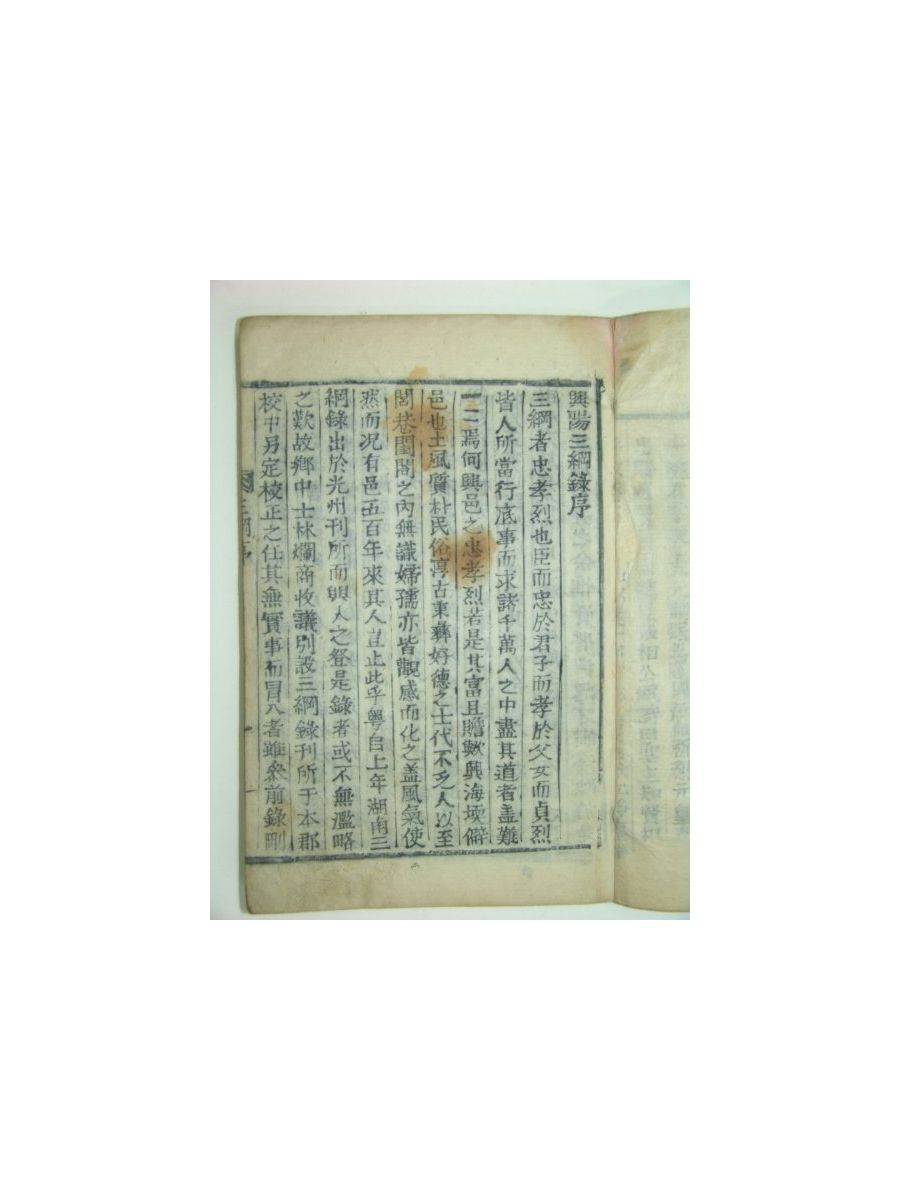 興陽三綱錄序
三綱者忠孝烈也臣而忠於君子而孝於父女而貞烈
皆人所當行底事而求諸千萬人之中盡其道者盖難
一二焉何興邑之忠孝烈若是其富且贍歟興海堧僻
邑也土風質朴民俗淳古秉彝好德之士代不乏人以至
閭巷閨閤之內無識婦孺亦皆觀感而化之盖風氣使
然而况有邑五百年來其人豈止此乎粤自上年湖南三
綱錄出於光州刊所而興人之登是錄者或不無濫略
之歎故鄉中士林爛商收議別設三綱錄刊所于本郡
校中另定校正之任其無實事而冒入者雖叅前錄刪
三綱序